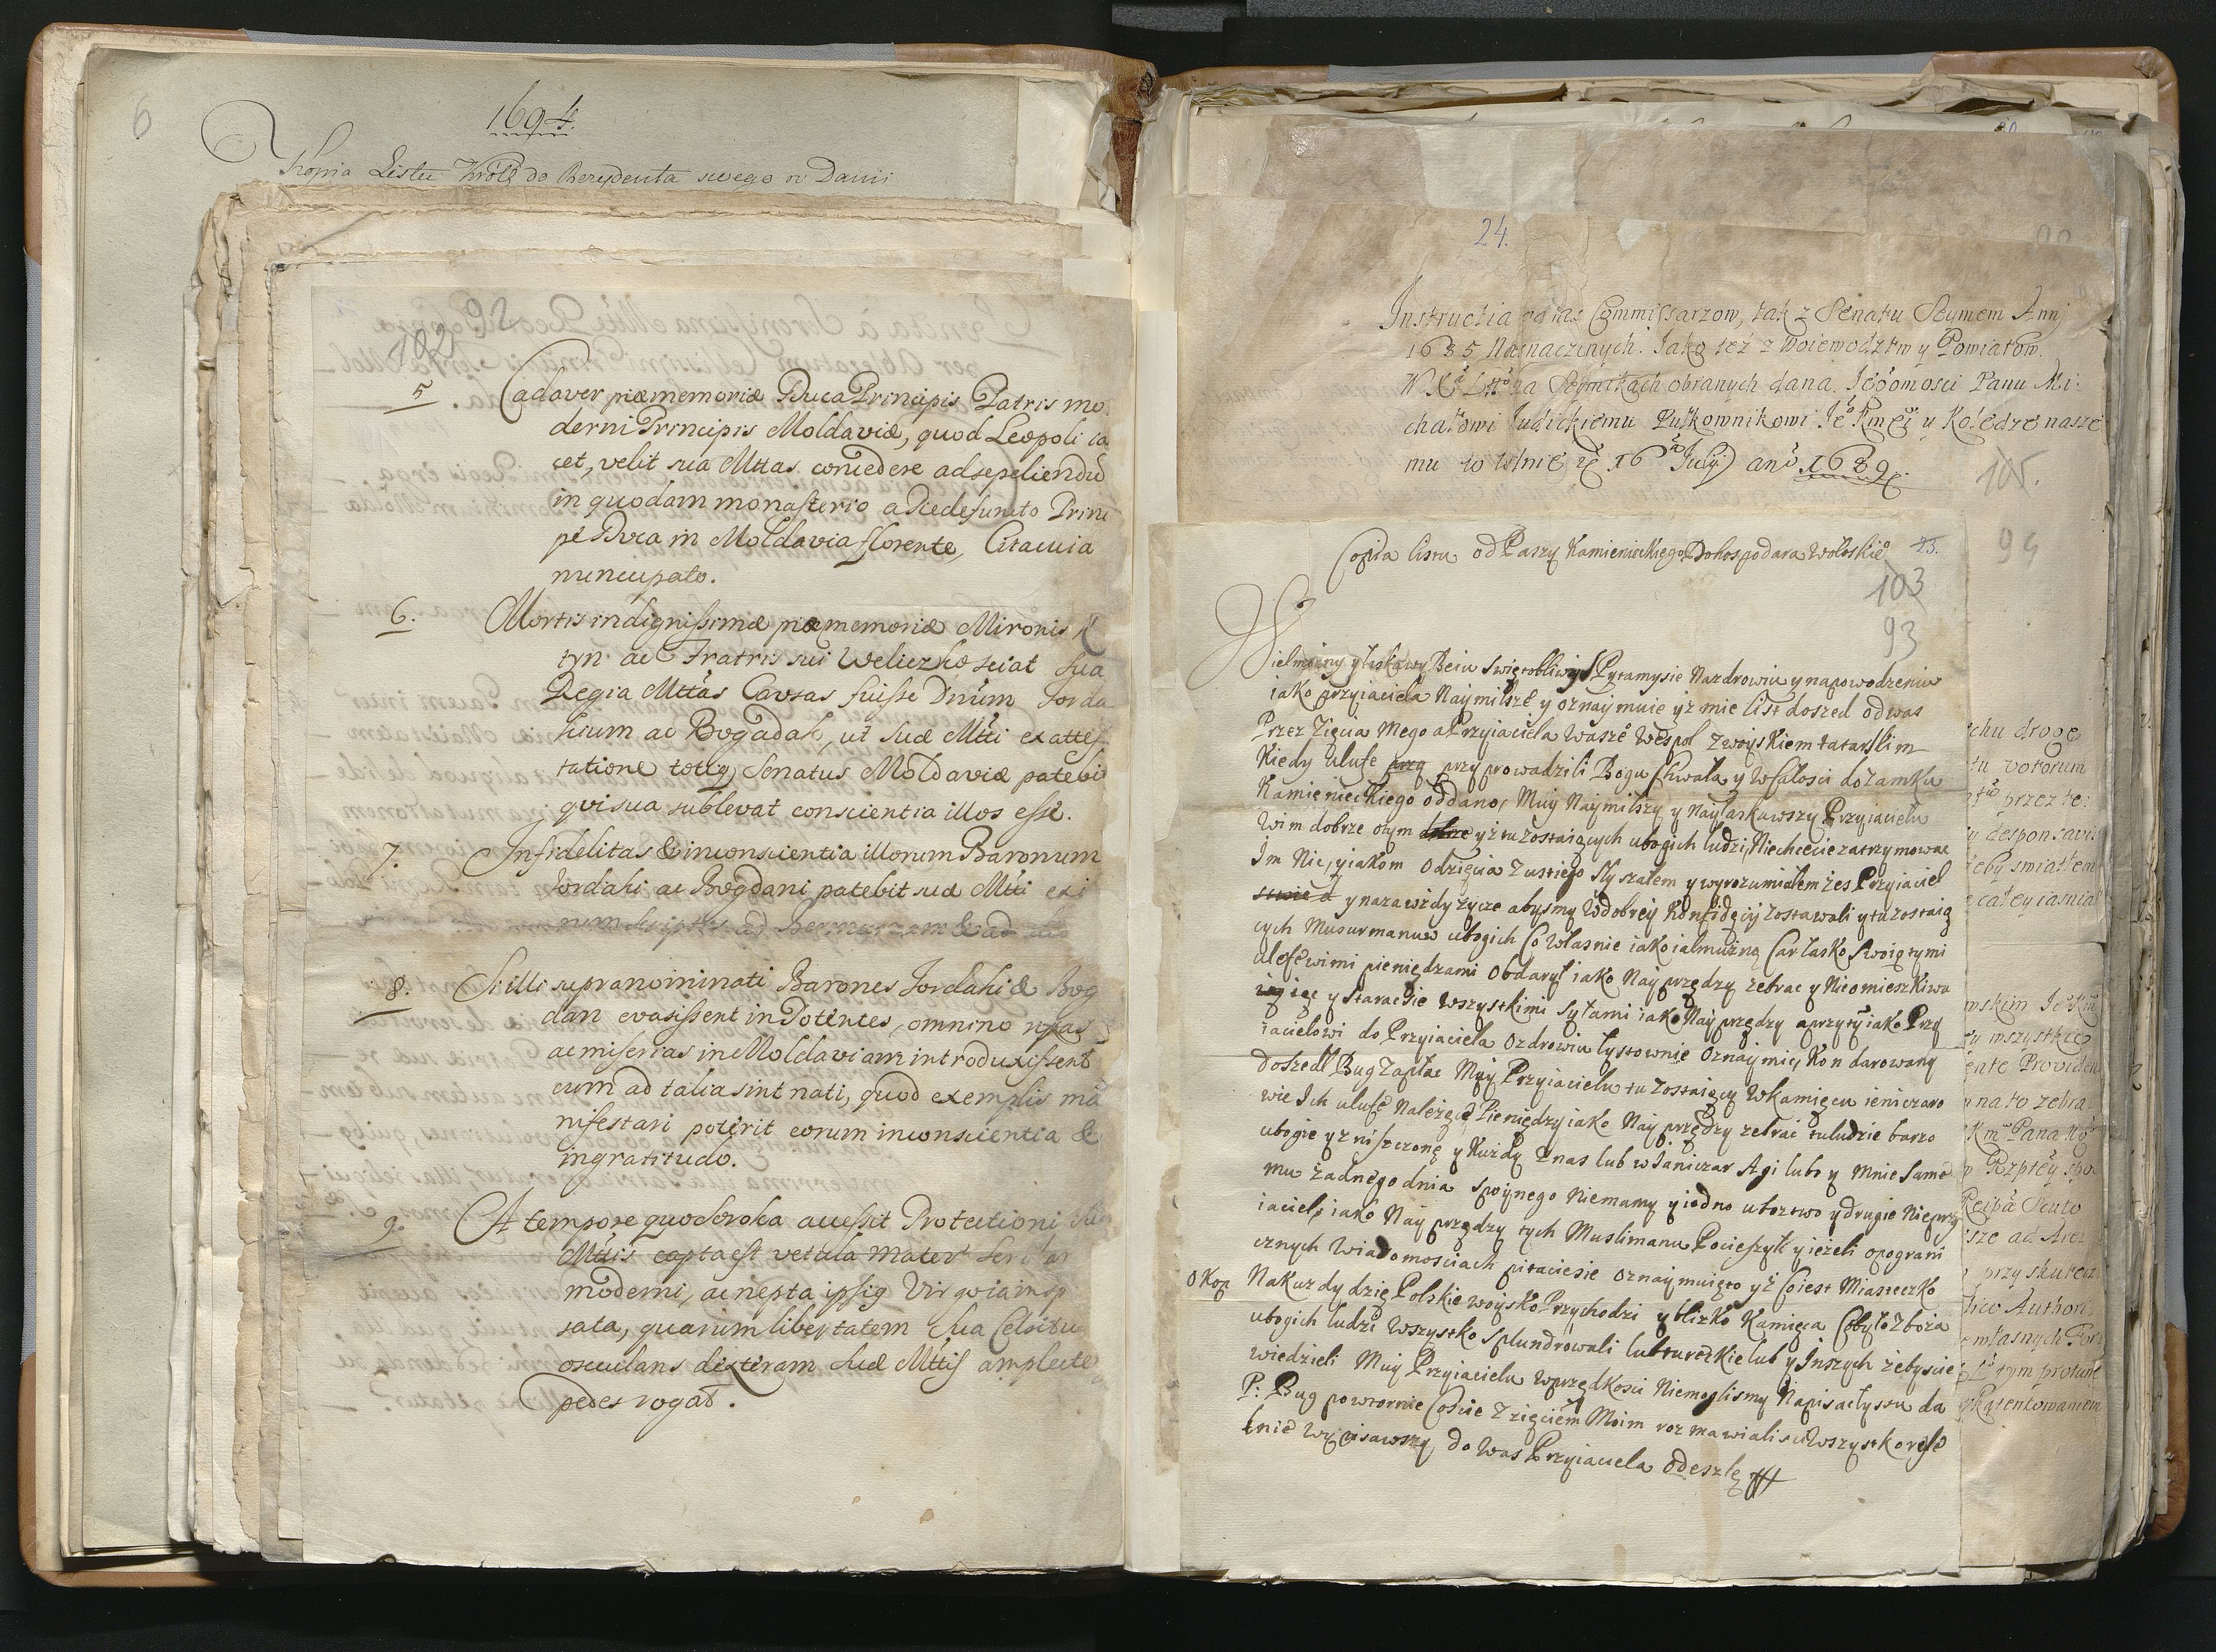 6
1694.
Kopia Listu Króla do Rezydenta swego w Danii
92
102
5 Cadaver piæ memoriæ Duca Principis Patris mo
derni Principis Moldaviæ, quod Leopoli ia
cet, velit sua Mttas concedere ad sepeliendū
in quodam monasterio a Piedefuncto Princi
pe Duca in Moldavia florente, Citacuia
nuncupato.
6. Mortis indignissimæ piæ memoriæ Mironis K
tyn ac Fratris sui Weliczko sciat Sua
Regia Mttas Causas fuisse Dnūm Jorda
hium ac Bogdan, ut Suæ Mtti ex attes
tatione totiq Senatus Moldaviæ patebit
qui sua sublevat conscientia illos esse.
7. Infidelitas & inconscientia illorum Baronum
Jordahi ac Bogdani patebit suæ Mtti exi
num scriptis ad & ad
8. Si illi supranominati Barones Jordahi & Bog
dan evasissent in Potentes, omnino nefas
ac miserias in Moldaviam introduxissent
cum ad talia sint nati, quod exemplis ma
nifestari poterit eorum inconscientia &
ingratitudo.
9. A tempore quo Soroka accessit Protectioni Suæ
Mttis capta est vetula mater
moderni, ac nepta ipsiq Virgo
sata, quarum libertatem Sua Celsitu
osculans dexteram Suæ Mttis amplecte
pedes rogat.
24.
Instructia od nas Commissarzow, tak z Senatu Seymem Anni
1685 Naznaczonych. Jako też z Woiewodztw y Powiatow.
W X Litt na Seymikach obranych dana Jeomosci Panu Mi:
chałowi Pułkownikowi Je Kmći y Koledze nasze
mu w Wilnie 16 July anō 1689.
105.
94
Copia listu od Paszy Kamienieckiego Do hospodara Wołoskieo 25.
103
93
Wielmożny y łaskawy Beiu Swiętobliwy Pytamy sie Nazdrowiu y napowodzeniu
iako przyiaciela Naymilsze y oznaymuie yż mie list doszed od was
Przez Zięcia mego a Przyiaciela Wasze Wespoł z woyskiem tatarskim
Kiedy Ulufe przy przyprowadzili Bogu Chwała y Wcałosci do Zamku
Kamienieckiego oddano, Muy Naymilszy y Nayłaskawszy Przyiacielu
Wim dobrze otym dobrze yż tu zostaiących ubogich ludzi, Niechcecie zatrzymowac
Im Nic, y iakom Od zięcia Zustiego Słyszałem y wyrozumiałem żes Przyiaciel
y nazawżdy życze abysmy Wdobrey Konfidęcij zostawali y tu zostaią
cych Musurmanuw ubogich Co Własnie iako iałmużną Car łasko Swoią tymi
ulefewimi pieniędzami Obdarył iako Nay przędzy zebrac y Nieomieszkiwa
iąc y Staracsie Wszystkimi Syłami iako Nay przędzy a przytym iako Przy
iacielowi do Przyiaciela Ozdrowiu łystownie Oznaymic, Kon darowany
doszedł Bug Zapłac Muy Przyiacielu tu Zostaięcy Wkamięcu ieniczaro
wie Ich ulufe Należęce Pieniędzy iako Nay przędzy zebrac tu ludzie barzo
ubogie y zniszczone y Każdy Znas lub w Janiczar Agi lubo y Mnie Same
mu żadnego dnia Spoynego Niemamy y iedno ubożtwo y drugie Nieprzy
iaciel, iako Nay przędzy tych Muslimanu Pocieszyłi y ieżeli opograni
cznych Wiadomosciach pitaciesie oznaymuięto yż Co iest Miasteczko
OKop Nakuzdy dzię Polskie woysko Przychodzi y blizko Kamięca Cobyło Zboża
ubogich ludzi Wszystko splundrowali lub tureckie lub y Inszych żebyscie
wiedzieli Muy Przyiacielu Wprzędkosci Niemoglismy Napisac łystu da
P: Bug powtornie Coscie z zięciem Moim rozmawialiscie Wszystko
łnie wypisawszy do Was Przyiaciela odeszlę
chu drogę
tu votorum
przez te:
desponsavi
mskim
wszystkie
ente Providen
na to zebra
Kmć Pana
Rzptey spo
Reipâ Scuto
przy skutecz
Author
własnych For
tym proture